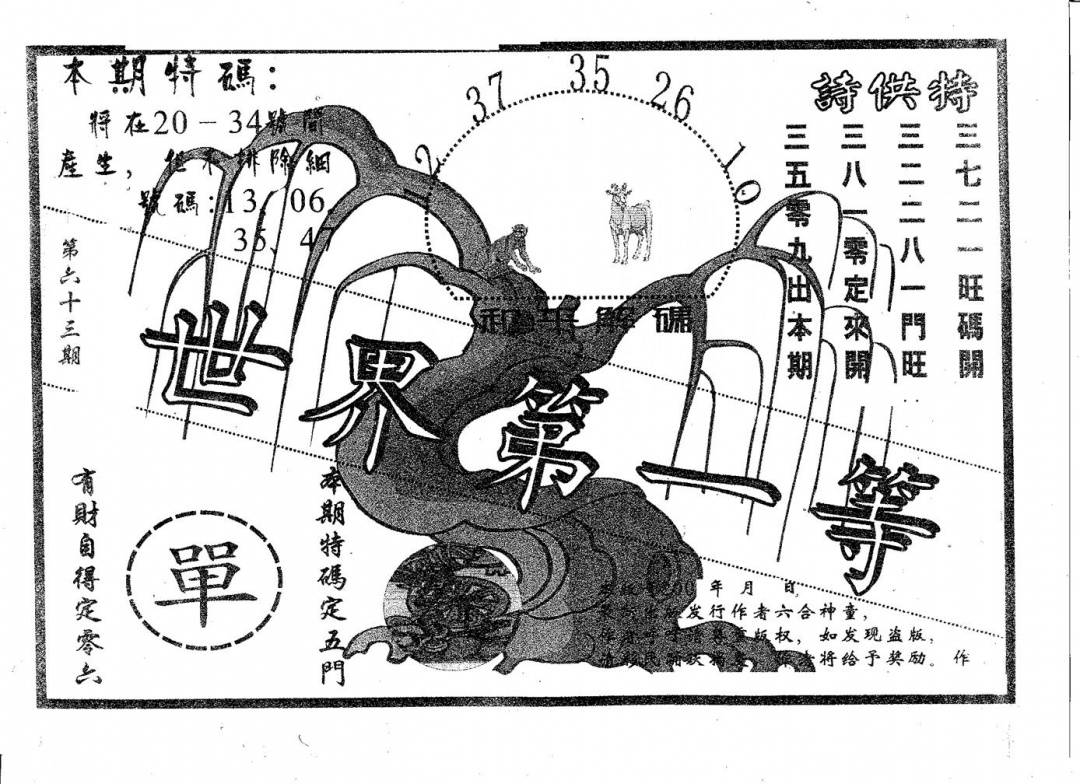 本期特碼：
將在20－34號間
產生，但不排除細
號碼:13、06、
35、47
第六十三期
12
37
35
26
10
詩供特
三七二一旺碼開
三二二八一門旺
三八一零定來開
三五零九出本期
解碼
世界第一等
有財自得定零六
單
本期特碼定五門
年 月 日
发行作者六合神童，
版权，如发现盗版，
将给予奖励。作